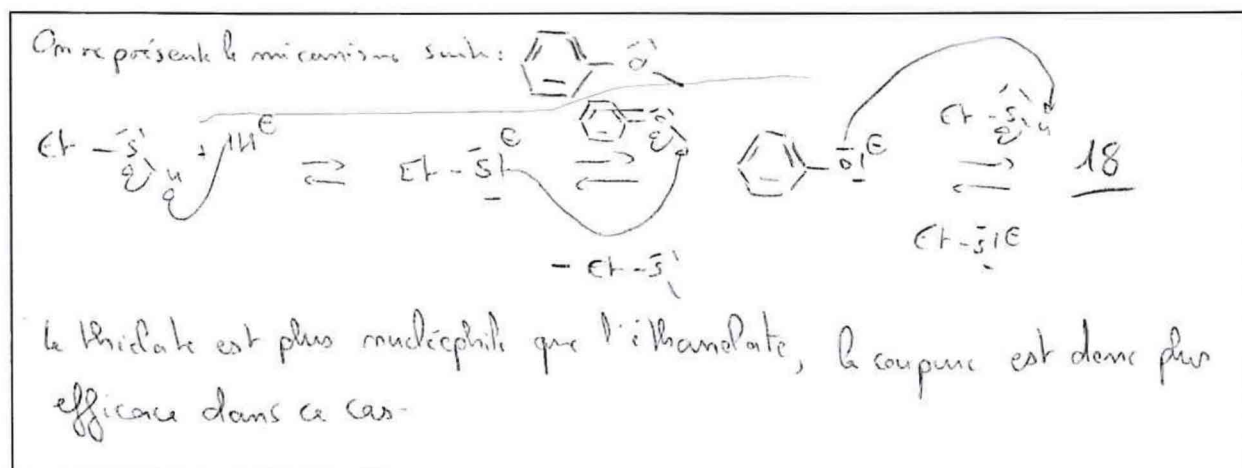 On représente le mécanisme suit:
Et - S H + IH ⊖ ⇌ Et - S ⊖ ⇌ O ⊖ Et - S H ⇌ 18
Et - S ⊖
- Et - S
le thiolate est plus nucléophile que l'éthanolate, la coupure est donc plus
efficace dans ce cas.